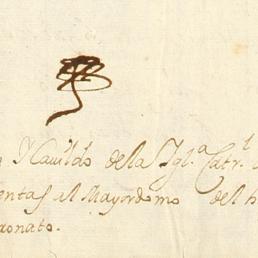 Y Cavildo de la Igl.ª Catr.l
entas el Mayordomo del h
ronato.